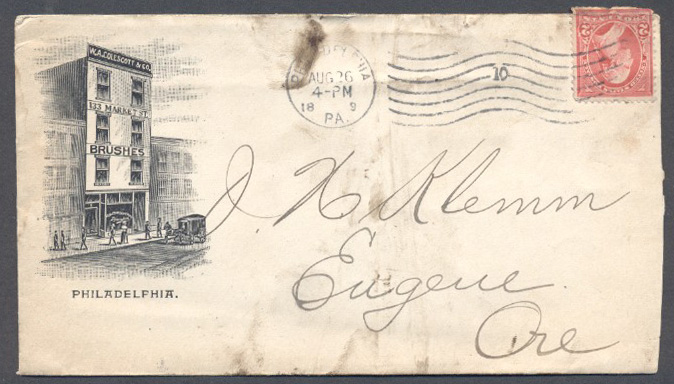 W.A. COLESCOTT & CO.
133 MARKET ST.
BRUSHES
PHILADELPHIA.
PHILADELPHIA
AUG 26
4-PM
18 9
PA.
10
2 2
J. X Klemm
Eugene
Ore